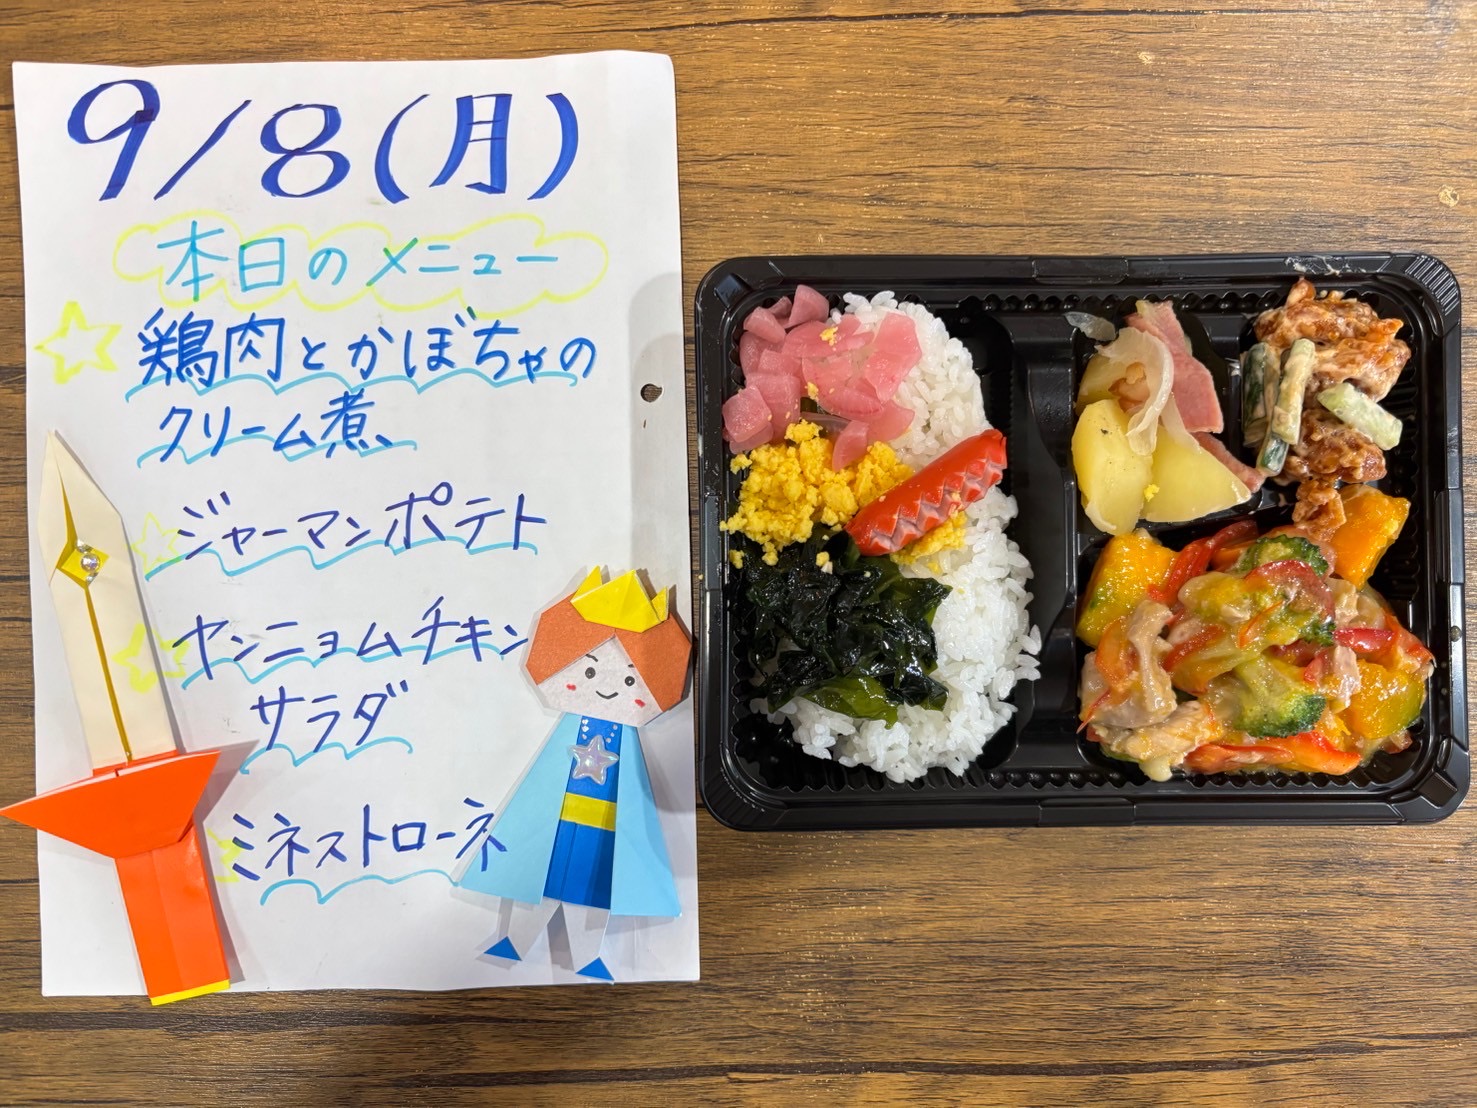 9/8(月)
本日のメニュー
鶏肉とかぼちゃの
クリーム煮
ジャーマンポテト
ヤンニョムチキン
サラダ
ミネストローネ